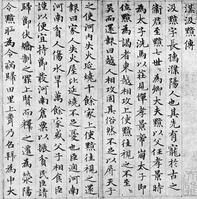 漢汲黯傳
汲黯字長孺濮陽人也其先有寵於古之
衛君至黯七世世為卿大夫黯以父任孝景時
為太子洗馬以莊見憚孝景帝崩太子即
位黯為謁者東越相攻上使黯往視之不至至吳
而還報曰越人相攻固其俗然不足以辱天子
之使河內失火延燒千餘家上使黯往視之還
報曰家人失火屋比延燒不足憂也臣過河南
河南貧人傷水旱萬餘家或父子相食臣謹
以便宜持節發河南倉粟以振貧民臣請
歸節伏矯制之罪上賢而釋之遷為滎陽
令黯恥為令病歸田里上聞乃召拜為中大